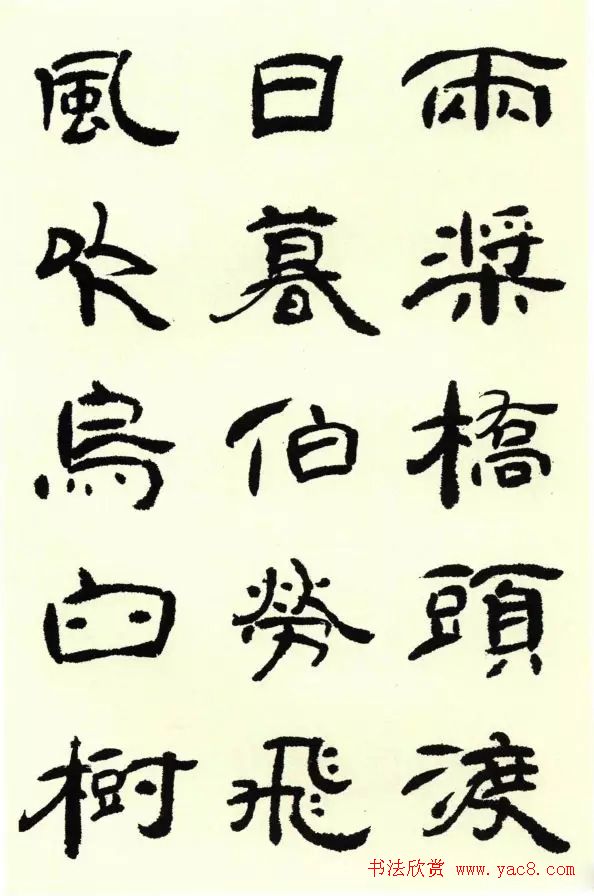 兩槳橋頭渡
日暮伯勞飛
風吹烏臼樹
书法欣赏 www.yac8.com